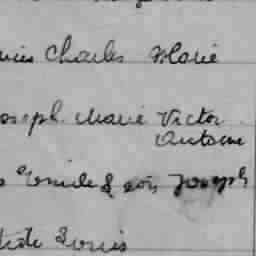 Charles Marie
Joseph Marie Victor
Antoine
Emile Léon Joseph
Louis